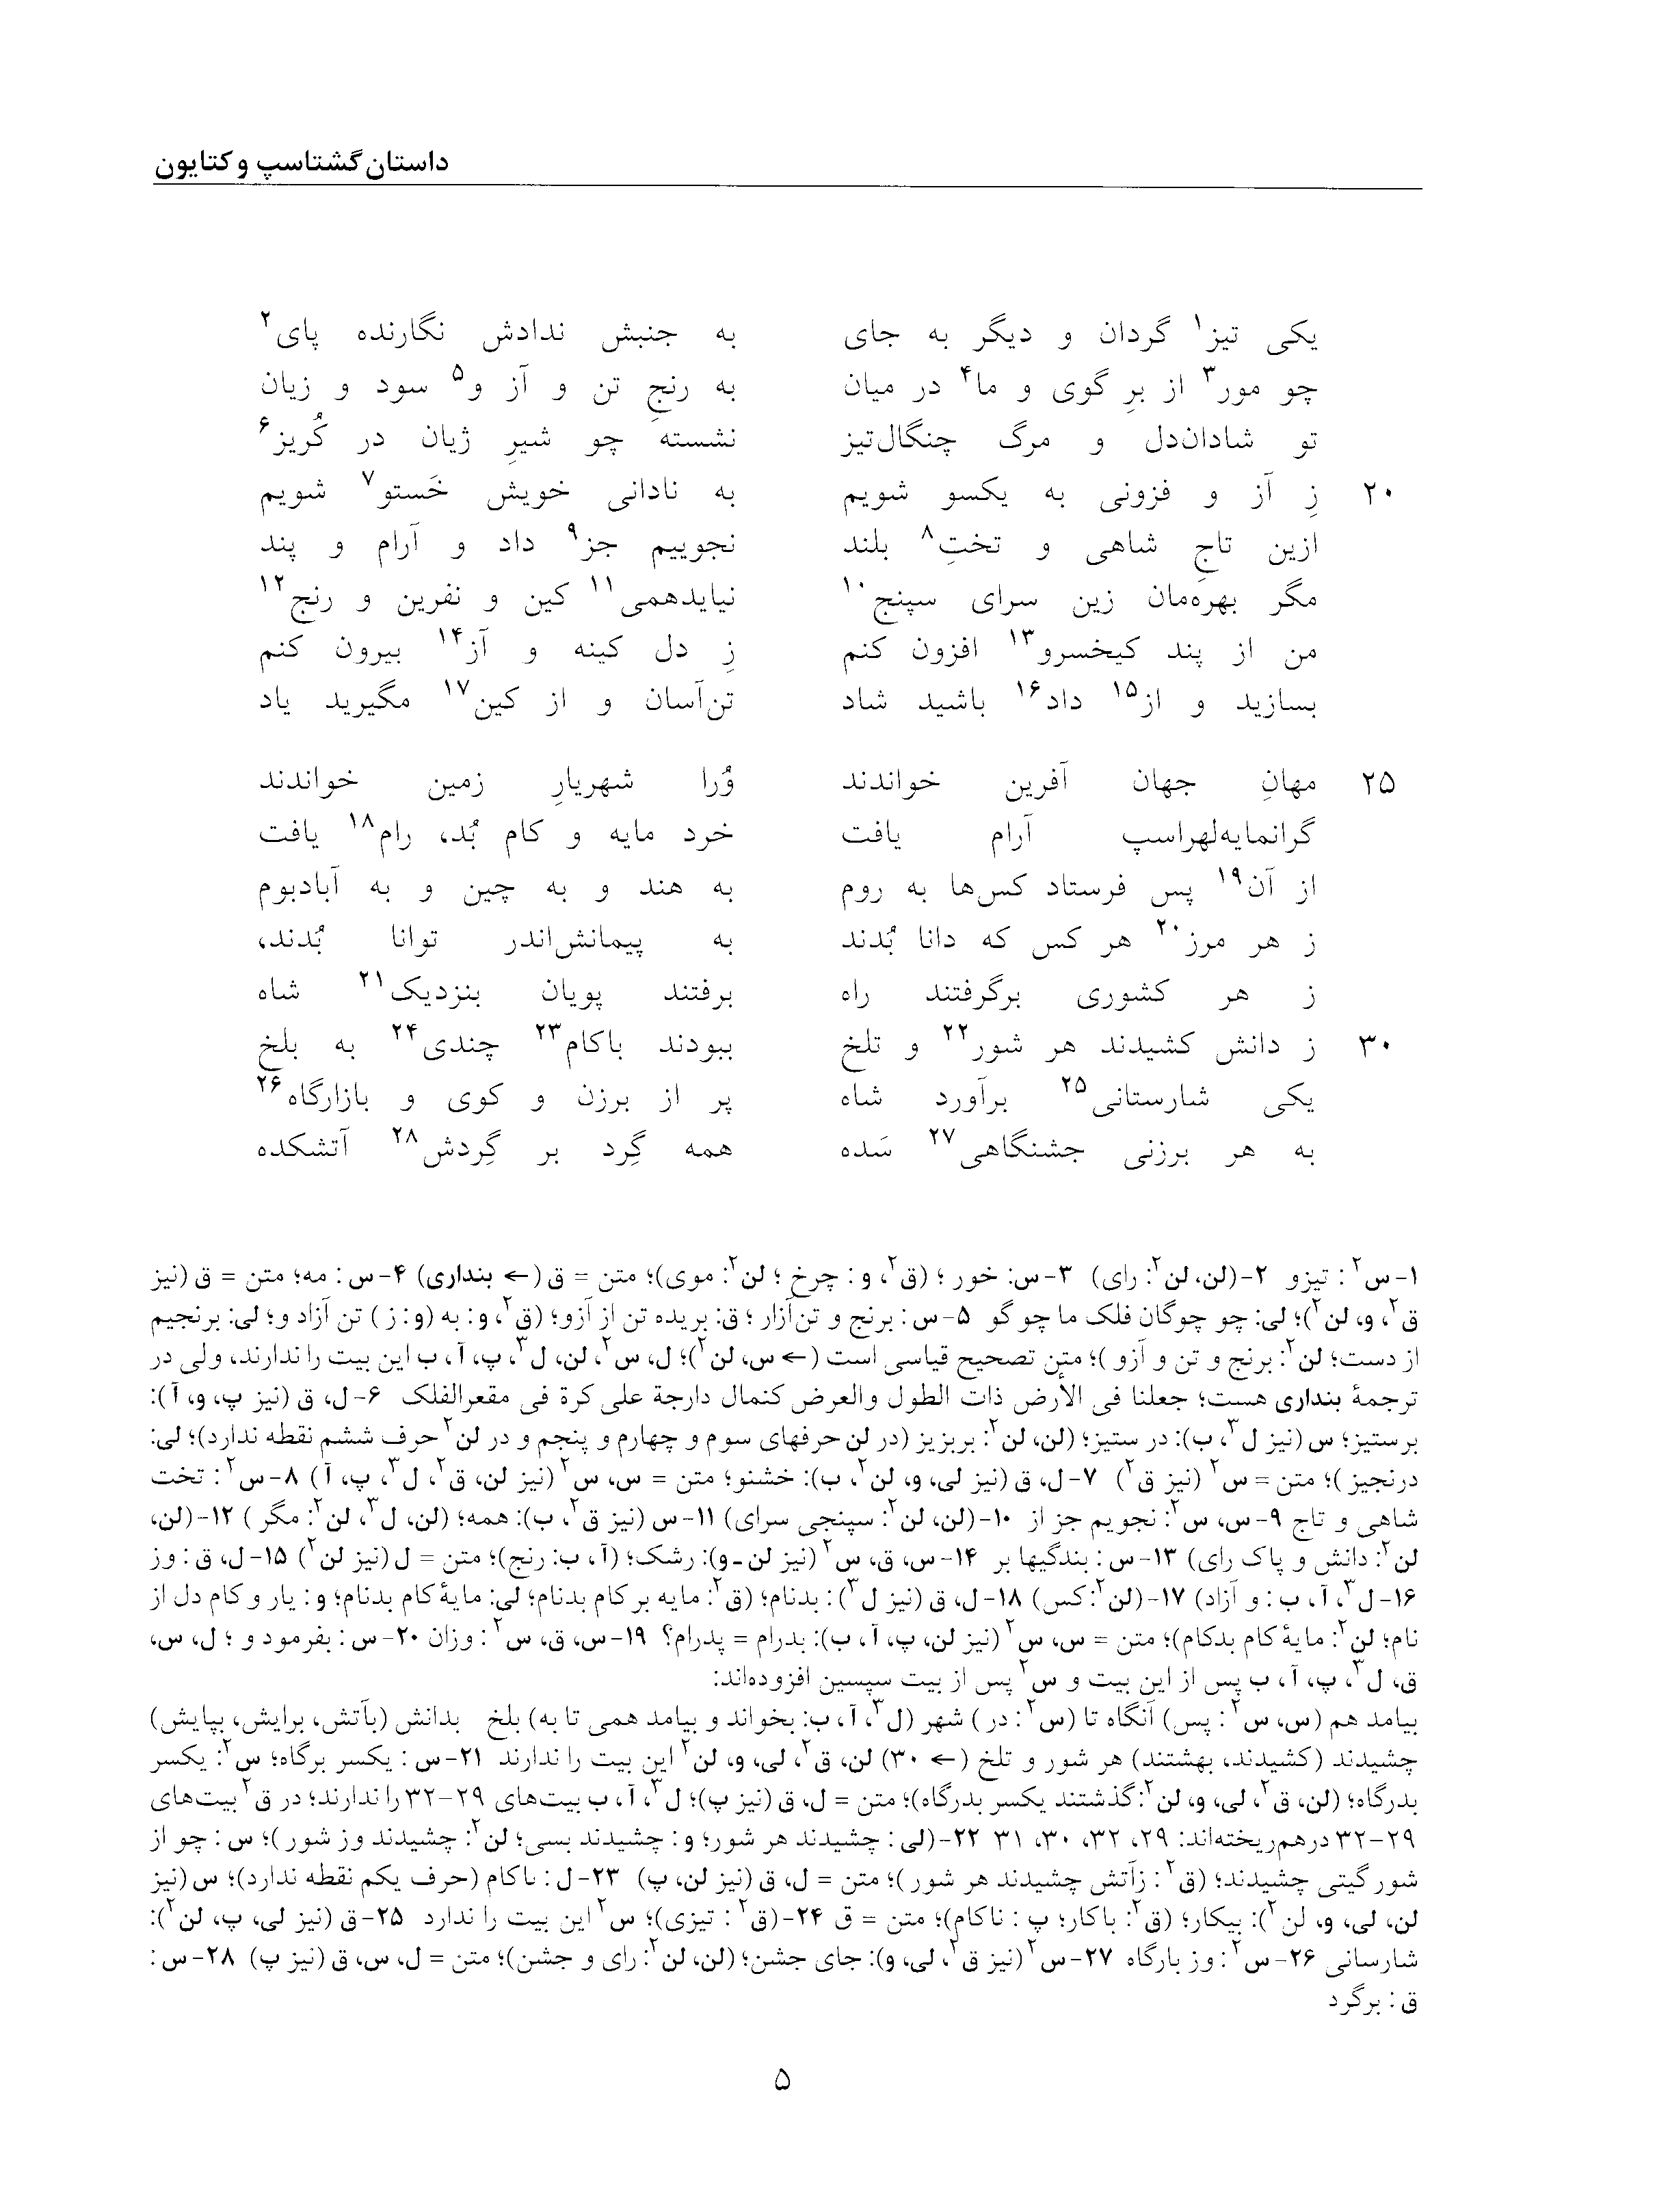 داستان گشتاسپ و کتایون
یکی تیز۱ گردان و دیگر به جای به جنبش ندادش نگارنده پای۲
چو مور۳ از برِ گوی و ما۴ در میان به رنجِ تن و آز و۵ سود و زیان
تو شادان‌دل و مرگ چنگال‌تیز نشسته چو شیرِ ژیان در کُریز۶
۲۰ زِ آز و فزونی به یکسو شویم به نادانی خویش خَستو۷ شویم
ازین تاجِ شاهی و تختِ۸ بلند نجوییم جز۹ داد و آرام و پند
مگر بهره‌مان زین سرای سپنج۱۰ نیایدهمی۱۱ کین و نفرین و رنج۱۲
من از پند کیخسرو۱۳ افزون کنم زِ دل کینه و آز۱۴ بیرون کنم
بسازید و از۱۵ داد۱۶ باشید شاد تن‌آسان و از کین۱۷ مگیرید یاد
۲۵ مهانِ جهان آفرین خواندند وُرا شهریارِ زمین خواندند
گرانمایه‌لهراسپ آرام یافت خرد مایه و کام بُد، رام۱۸ یافت
از آن۱۹ پس فرستاد کس‌ها به روم به هند و به چین و به آبادبوم
ز هر مرز۲۰ هر کس که دانا بُدند به پیمانش‌اندر توانا بُدند،
ز هر کشوری برگرفتند راه برفتند پویان بنزدیک۲۱ شاه
۳۰ ز دانش کشیدند هر شور۲۲ و تلخ ببودند باکام۲۳ چندی۲۴ به بلخ
یکی شارستانی۲۵ برآورد شاه پر از برزن و کوی و بازارگاه۲۶
به هر برزنی جشنگاهی۲۷ سَده همه گِرد بر گِردش۲۸ آتشکده
۱-س۲: تیزو ۲-(لن، لن۲: رای) ۳-س: خور؛ (ق۲، و: چرخ؛ لن۲: موی)؛ متن = ق (← بنداری) ۴-س: مه؛ متن = ق (نیز
ق۲، و، لن۲)؛ لی: چو چوگان فلک ما چو گو ۵-س: برنج و تن‌آزار؛ ق: بریده تن از آزو؛ (ق۲، و: به (و: ز) تن آزاد و؛ لی: برنجیم
از دست؛ لن۲: برنج و تن و آزو)؛ متن تصحیح قیاسی است (← س، لن۲)؛ ل، س۲، لن، ل۳، پ، آ، ب این بیت را ندارند، ولی در
ترجمۀ بنداری هست؛ جعلنا فی الأرض ذات الطول والعرض کنمال دارجة علی کرة فی مقعرالفلک ۶-ل، ق (نیز پ، و، آ):
برستیز؛ س (نیز ل۳، ب): در ستیز؛ (لن، لن۲: بربزیز (در لن حرفهای سوم و چهارم و پنجم و در لن۲ حرف ششم نقطه ندارد)؛ لی:
درنجیز)؛ متن = س۲ (نیز ق۲) ۷-ل، ق (نیز لی، و، لن۲، ب): خشنو؛ متن = س، س۲ (نیز لن، ق۲، ل۳، پ، آ) ۸-س۲: تخت
شاهی و تاج ۹-س، س۲: نجویم جز از ۱۰-(لن، لن۲: سپنجی سرای) ۱۱-س (نیز ق۲، ب): همه؛ (لن، ل۳، لن۲: مگر) ۱۲-(لن،
لن۲: دانش و پاک رای) ۱۳-س: بندگیها بر ۱۴-س، ق، س۲ (نیز لن-و): رشک؛ (آ، ب: رنج)؛ متن = ل (نیز لن۲) ۱۵-ل، ق: وز
۱۶-ل۳، آ، ب: و آزاد) ۱۷-(لن۲: کس) ۱۸-ل، ق (نیز ل۳): بدنام؛ (ق۲: مایه بر کام بدنام؛ لی: مایۀ کام بدنام؛ و: یار و کام دل از
نام؛ لن۲: مایۀ کام بدکام)؛ متن = س، س۲ (نیز لن، پ، آ، ب): بدرام = پدرام؟ ۱۹-س، ق، س۲: وزان ۲۰-س: بفرمود و؛ ل، س،
ق، ل۳، پ، آ، ب پس از این بیت و س۲ پس از بیت سپسین افزوده‌اند:
بیامد هم (س، س۲: پس) آنگاه تا (س۲: در) شهر (ل۳، آ، ب: بخواند و بیامد همی تا به) بلخ بدانش (بآتش، برایش، بپایش)
چشیدند (کشیدند، بهشتند) هر شور و تلخ (← ۳۰) لن، ق۲، لی، و، لن۲ این بیت را ندارند ۲۱-س: یکسر برگاه؛ س۲: یکسر
بدرگاه؛ (لن، ق۲، لی، و، لن۲: گذشتند یکسر بدرگاه)؛ متن = ل، ق (نیز پ)؛ ل۳، آ، ب بیت‌های ۲۹-۳۲ را ندارند؛ در ق۲ بیت‌های
۲۹-۳۲ درهم‌ریخته‌اند: ۲۹، ۳۲، ۳۰، ۳۱ ۲۲-(لی: چشیدند هر شور؛ و: چشیدند بسی؛ لن۲: چشیدند وز شور)؛ س: چو از
شور گیتی چشیدند؛ (ق۲: زآتش چشیدند هر شور)؛ متن = ل، ق (نیز لن، پ) ۲۳-ل: ٮاکام (حرف یکم نقطه ندارد)؛ س (نیز
لن، لی، و، لن۲): بیکار؛ (ق۲: باکار؛ پ: ناکام)؛ متن = ق ۲۴-(ق۲: تیزی)؛ س۲ این بیت را ندارد ۲۵-ق (نیز لی، پ، لن۲):
شارسانی ۲۶-س۲: وز بارگاه ۲۷-س۲ (نیز ق۲، لی، و): جای جشن؛ (لن، لن۲: رای و جشن)؛ متن = ل، س، ق (نیز پ) ۲۸-س:
ق: برگرد
۵